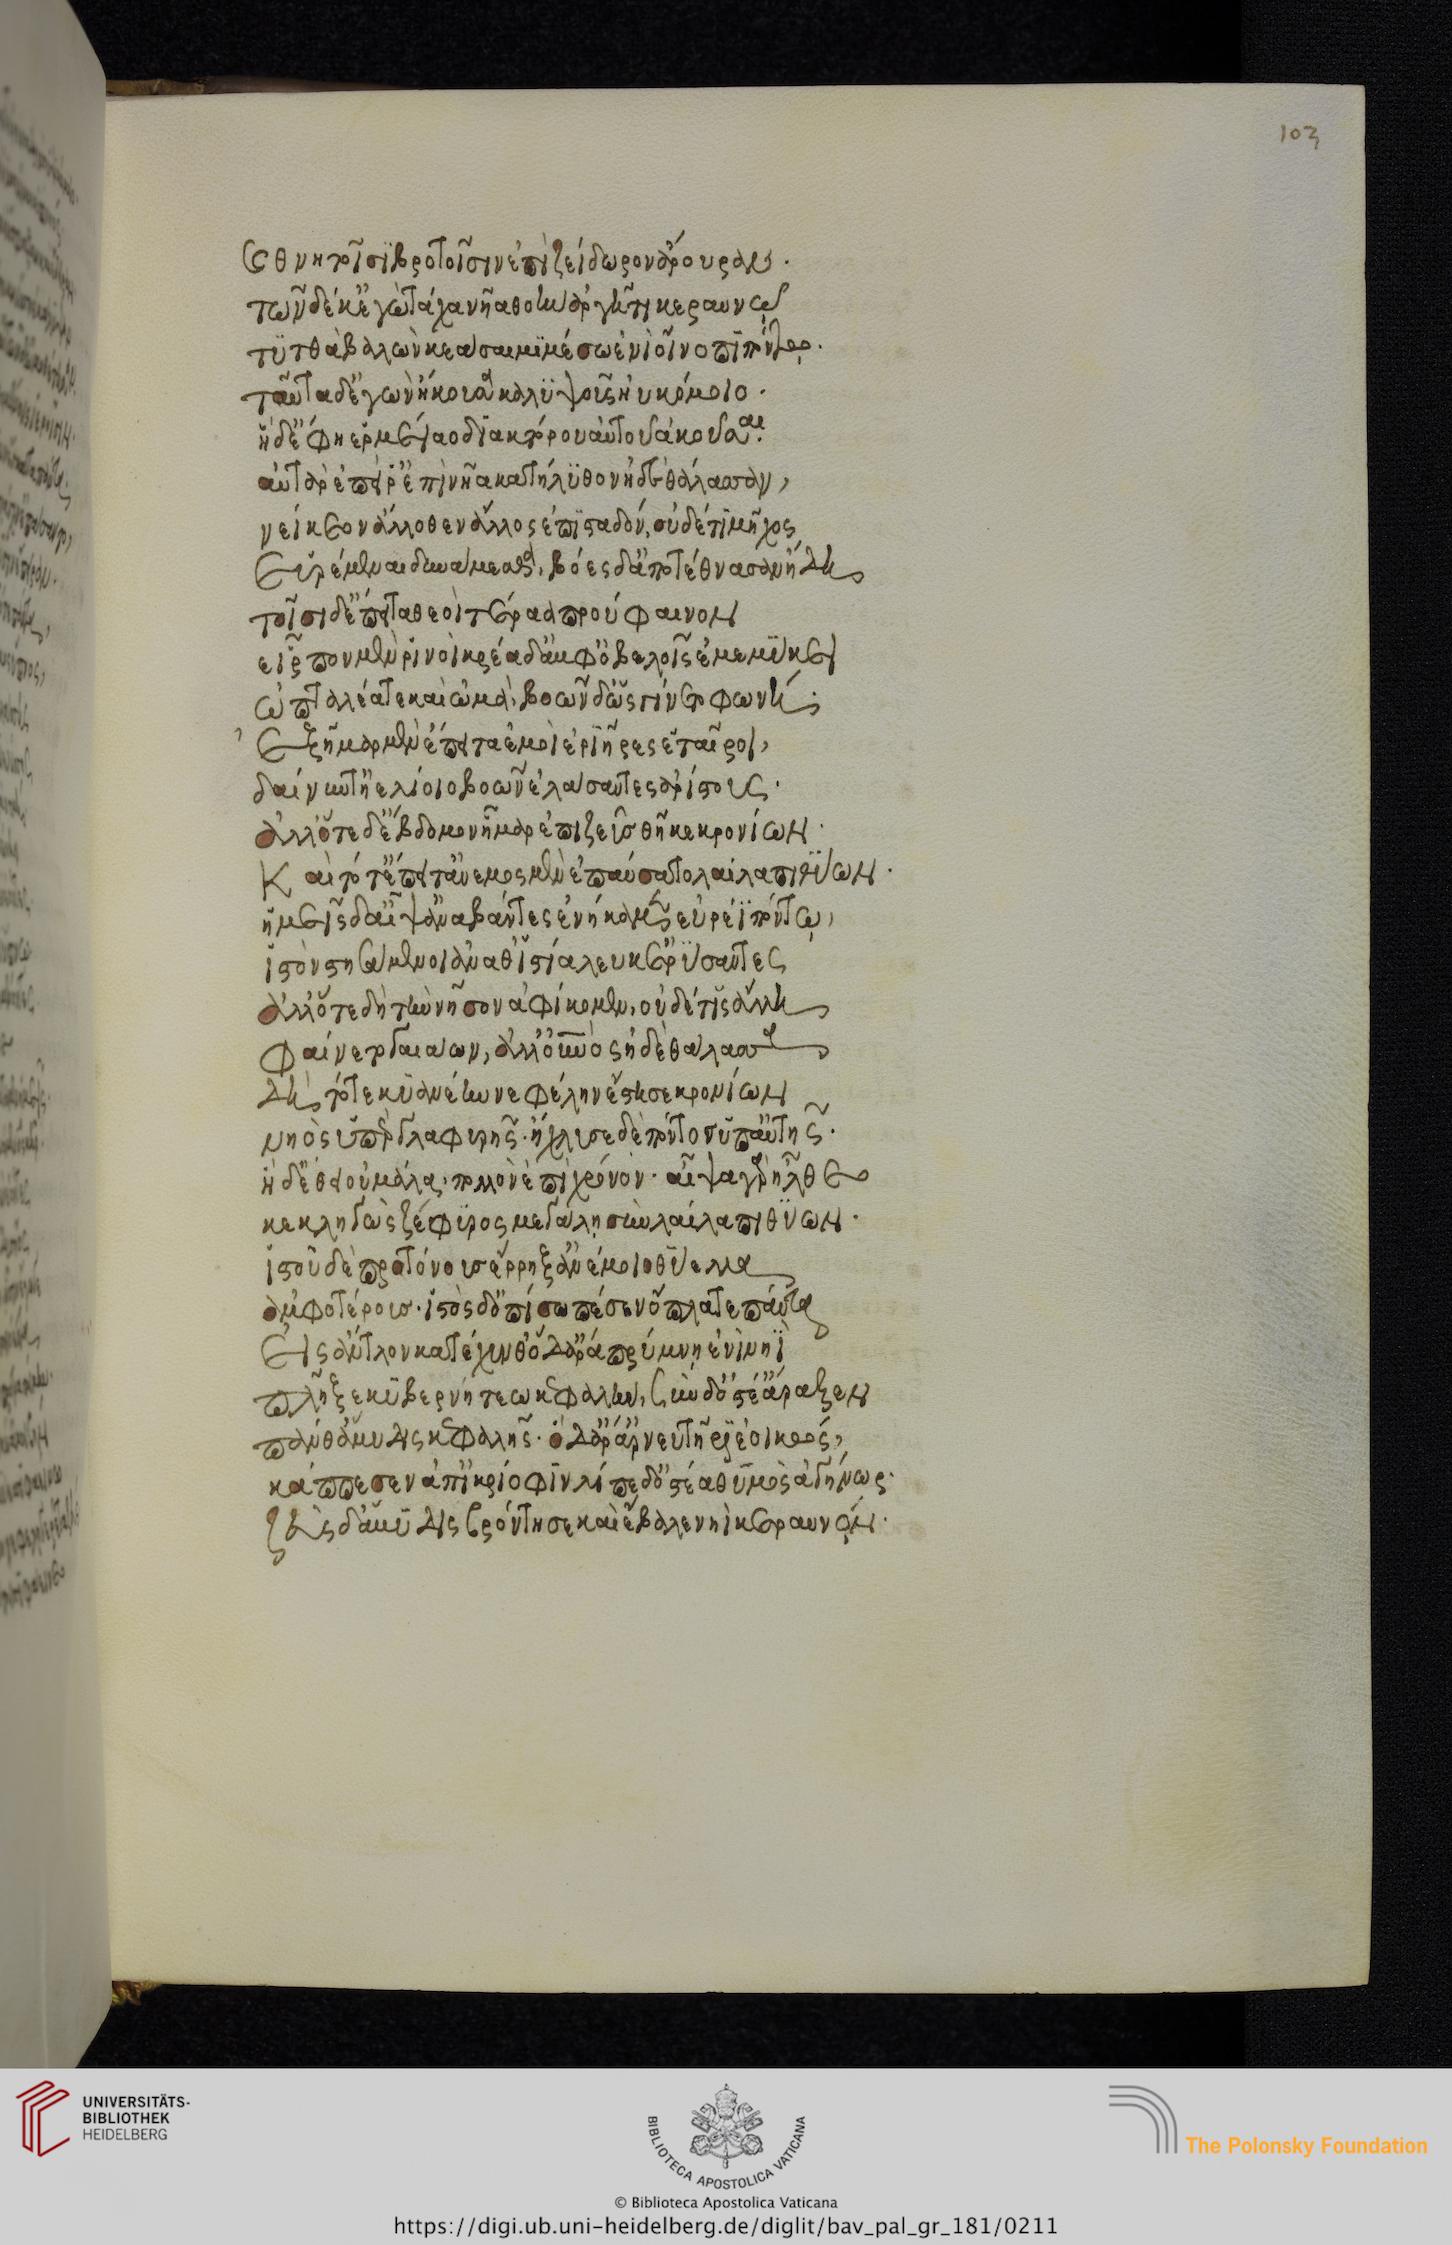 καὶ θνητοῖσι βροτοῖσιν ἐπὶ ζείδωρον ἄρουραν·
τῶν δέ κ' ἐγὼ τάχα νῆα θοὴν ἀργῆτι κεραυνῷ
τυτθὰ βαλὼν κεάσαιμι μέσω ἐνὶ οἴνοπι πόντω·
ταῦτα δ' ἐγὼν ἤκουσα καλυψοῦς ἠυκόμοιο·
ἡ δ' ἔφη ἑρμείαο διακτόρου αὐτοῦ ἀκοῦσαι·
αὐτὰρ ἐπεί ῥ' ἐπὶ νῆα κατήλυθον ἠδὲ θάλασσαν,
νείκεον ἄλλοθεν ἄλλος ἐπισταδόν, οὐδέ τι μῆχος
εὑρέμεναι δυνάμεσθα, βόες δ' ἀποτέθνασαν ἤδη
τοῖσι δ' ἔπειτα θεοὶ τέραα προύφαινον
εἷρπον μὲν ῥινοὶ κρέα δ' ἀμφ' ὀβελοῖς ἐμεμύκει
ὀπταλέα τε καὶ ὠμά, βοῶν δ' ὣς γίνετο φωνή·
ἑξῆμαρ μὲν ἔπειτα ἐμοὶ ἐρίηρες ἑταῖροι,
δαίνυντ' ἠελίοιο βοῶν ἐλάσαντες ἀρίστους·
ἀλλ' ὅτε δ' ἕβδομον ἦμαρ ἐπὶ ζεὺς θῆκε κρονίων·
Καὶ τότ' ἔπειτ' ἄνεμος μὲν ἐπαύσατο λαίλαπι θύων·
ἡμεῖς δ' αἶψ' ἀναβάντες ἐνήκαμεν εὐρέϊ πόντω,
ἱστὸν στησάμενοι ἀνά θ' ἱστία λεύκ' ἐρύσαντες
ἀλλ' ὅτε δὴ τὴν νῆσον ἀφίκομεν, οὐδέ τις ἄλλη
φαίνετο γαιάων, ἀλλ' οὐρανὸς ἠδὲ θάλασσα
δὴ τότε κυανέην νεφέλην ἔστησε κρονίων
νηὸς ὕπερ γλαφυρῆς· ἤχλυσε δὲ πόντος ὑπ' αὐτῆς·
ἡ δ' ἔθει οὐ μάλα πολλὸν ἐπὶ χρόνον· αἶψα γὰρ ἦλθε
κεκληγὼς ζέφυρος μεγάλη σὺν λαίλαπι θύων·
ἱστοῦ δὲ προτόνους ἔρρηξ' ἀνέμοιο θύελλα
ἀμφοτέρους· ἱστὸς δ' ὀπίσω πέσεν ὅπλα τε πάντα
εἰς ἄντλον κατέχυνθ' ὁ δ' ἄρα πρύμνη ἐνὶ νηῒ
πλῆξε κυβερνήτεω κεφαλήν, σὺν δ' ὀστέ' ἄραξεν
πάντ' ἄμυδις κεφαλῆς· ὁ δ' ἄρ' ἀρνευτῆρι ἐοικώς,
κάππεσεν ἀπ' ἰκριόφιν λίπε δ' ὀστέα θυμὸς ἀγήνωρ·
ζεὺς δ' ἄμυδις βρόντησε καὶ ἔμβαλε νηὶ κεραυνόν·
103
UNIVERSITÄTS-
BIBLIOTHEK
HEIDELBERG
BIBLIOTECA APOSTOLICA VATICANA
© Biblioteca Apostolica Vaticana
The Polonsky Foundation
https://digi.ub.uni-heidelberg.de/diglit/bav_pal_gr_181/0211